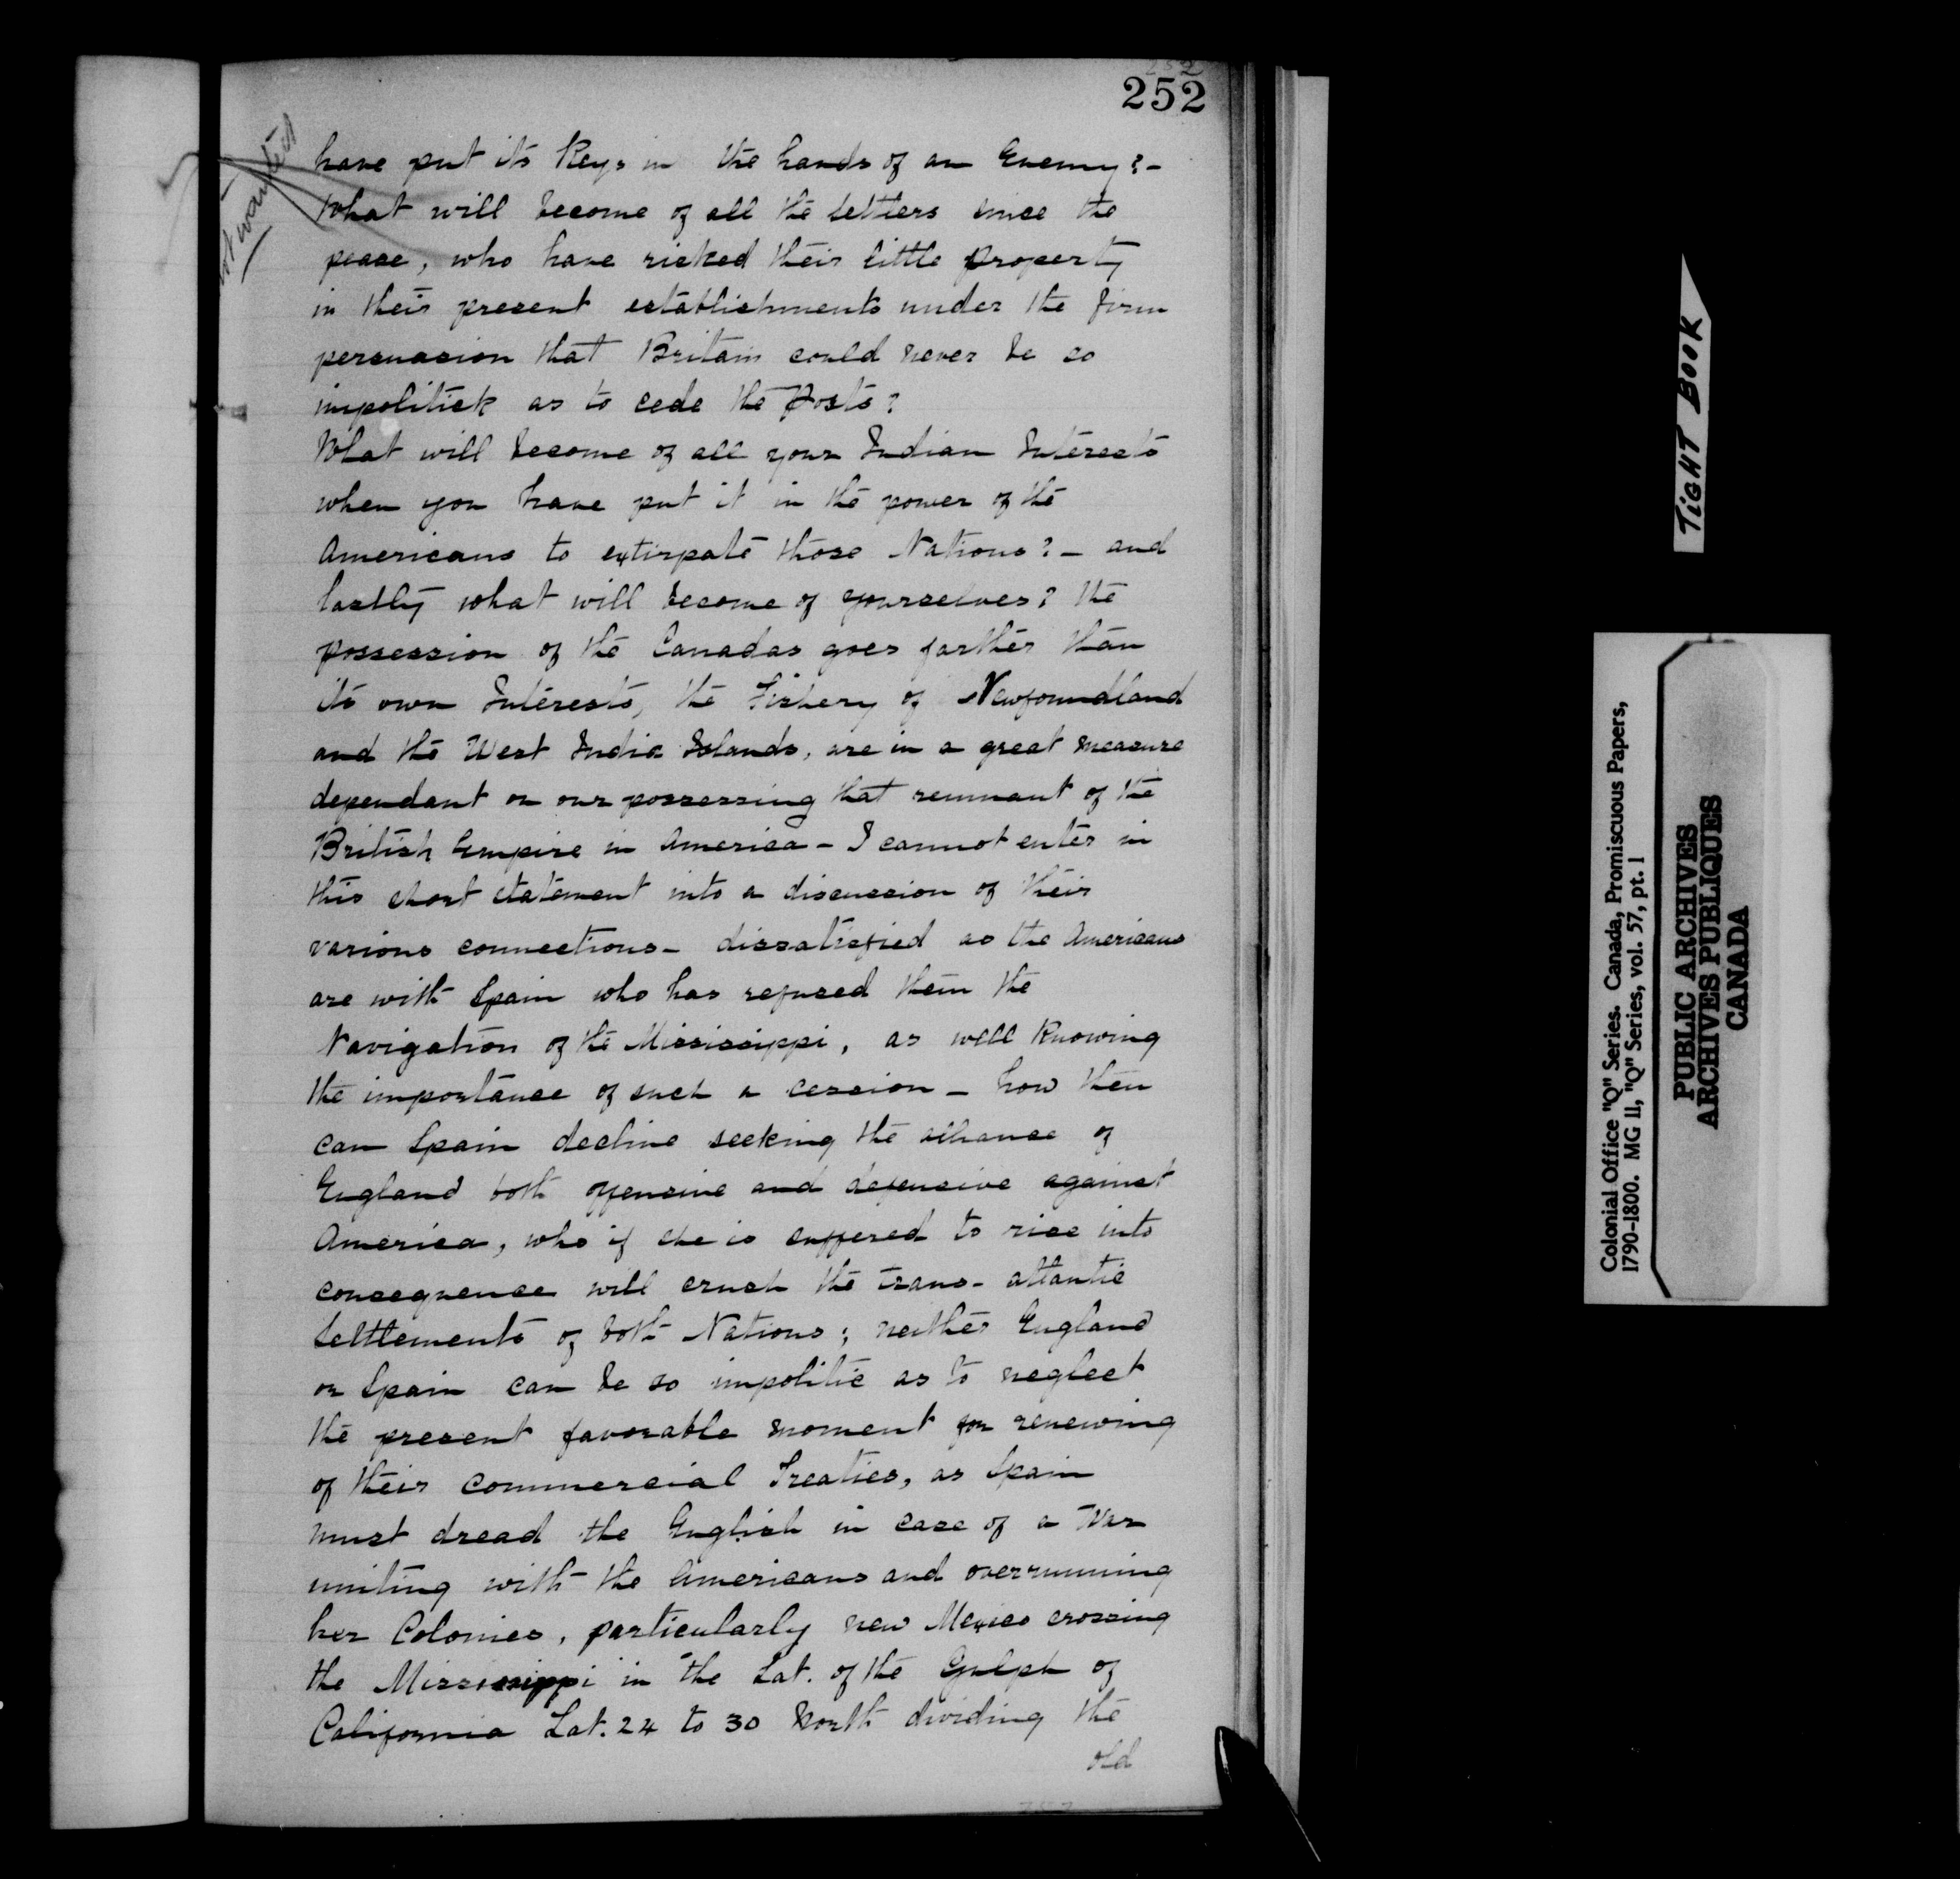 252
252
not wanted
have put its Keys in the hands of an Enemy?-
What will become of all the settlers since the
peace, who have risked their little property
in their present establishments under the firm
persuasion that Britain could never be so
impolitick as to cede the Posts?
What will become of all your Indian Interests
when you have put it in the power of the
Americans to extirpate those Nations? - and
lastly what will become of yourselves? the
possession of the Canadas goes farther than
its own Interests, the Fishery of Newfoundland
and the West India Islands, are in a great measure
dependant on our possessing that remnant of the
British Empire in America - I cannot enter in
this short statement into a discussion of their
various connections - dissatisfied as the Americans
are with Spain who has refused them the
Navigation of the Mississippi, as well Knowing
the importance of such a cession - how then
can Spain decline seeking the alliance of
England both offensive and defensive against
America, who if she is suffered to rise into
consequence will crush the trans-atlantic
Settlements of both Nations; neither England
or Spain can be so impolitic as to neglect
the present favorable moment for renewing
of their commercial Treaties, as Spain
must dread the English in case of a War
uniting with the Americans and overrunning
her Colonies, particularly new Mexico crossing
the Mississippi in the Lat. of the Gulph of
California Lat. 24 to 30 North dividing the
old
TIGHT BOOK
Colonial Office "Q" Series. Canada, Promiscuous Papers,
1790-1800. MG 11, "Q" Series, vol. 57, pt. 1
PUBLIC ARCHIVES
ARCHIVES PUBLIQUES
CANADA